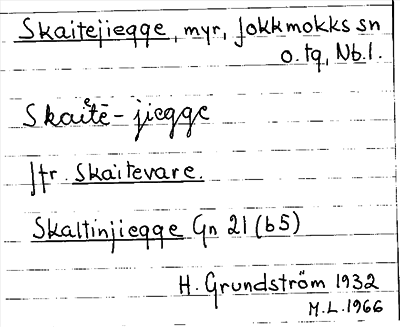 Skaitejiegge, myr, Jokkmokks sn
o. tg, Nb.l.
Skaĭtē-jiegge
Jfr. Skaitevare.
Skaltinjiegge Gn 21 (b5)
H. Grundström 1932
M.L. 1966